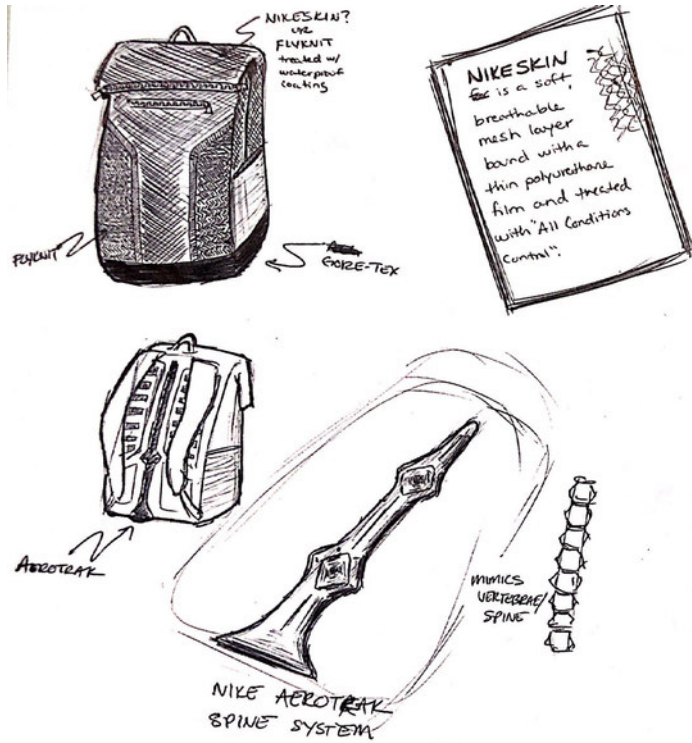 NIKESKIN?
OR
FLYKNIT
treated w/
waterproof
coating
NIKESKIN
is a soft,
breathable
mesh layer
bound with a
thin polyurethane
film and treated
with "All Conditions
Control".
FLYKNIT
GORE-TEX
AEROTRAK
MIMICS
VERTEBRAE/
SPINE
NIKE AEROTRAK
SPINE SYSTEM